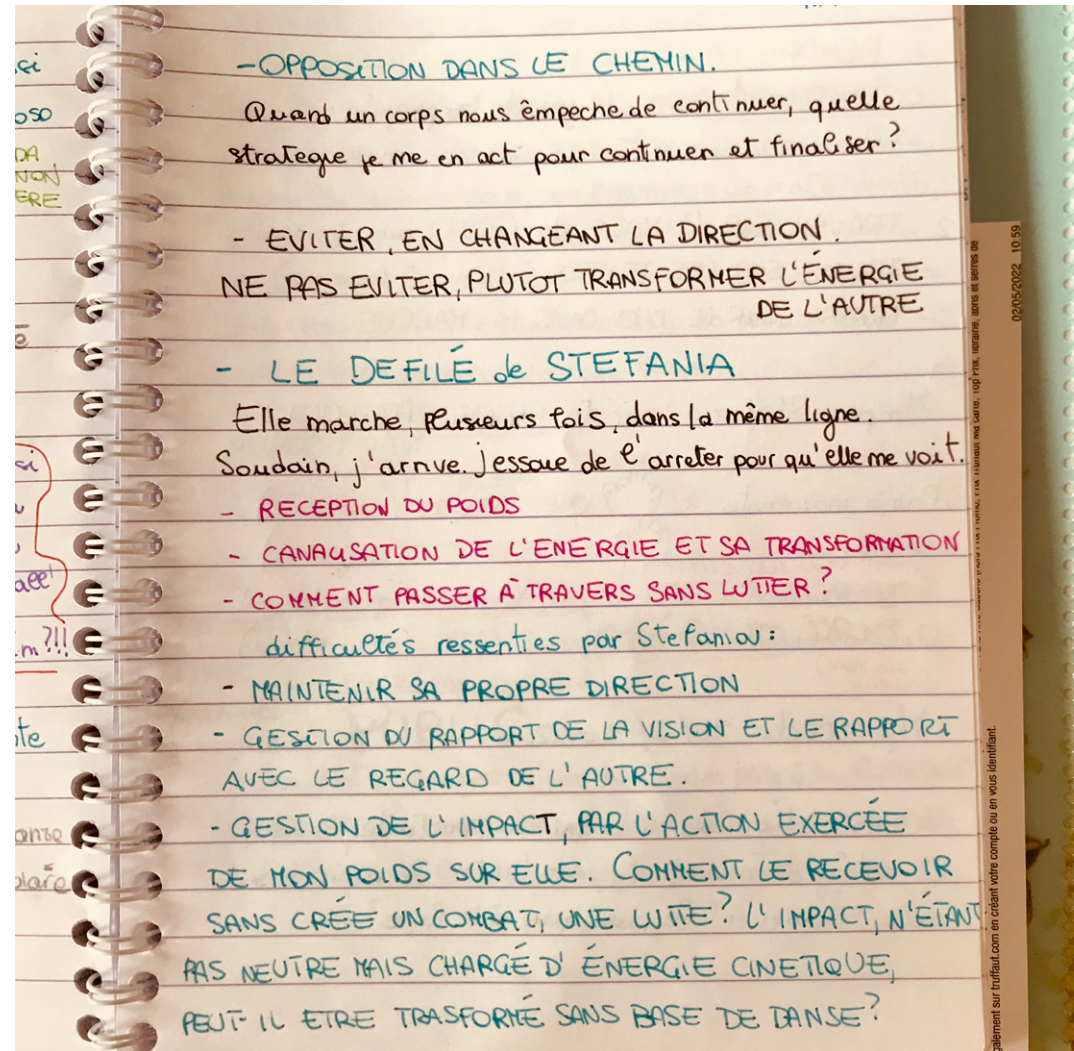 -OPPOSITION DANS LE CHEMIN.
Quand un corps nous êmpeche de continuer, quelle
strategie je me en act pour continuer et finaliser?
- EVITER, EN CHANGEANT LA DIRECTION.
NE PAS EVITER, PLUTOT TRANSFORMER L'ÉNERGIE
DE L'AUTRE
- LE DEFILÉ de STEFANIA
Elle marche, plusieurs fois, dans la même ligne.
Soudain, j'arrive. J'essaie de l'arreter pour qu'elle me voit.
- RECEPTION DU POIDS
- CANALISATION DE L'ENERGIE ET SA TRANSFORMATION
- COMMENT PASSER À TRAVERS SANS LUTTER?
difficultés ressenties par Stefania:
- MAINTENIR SA PROPRE DIRECTION
- GESTION DU RAPPORT DE LA VISION ET LE RAPPORT
AVEC LE REGARD DE L'AUTRE.
- GESTION DE L'IMPACT, PAR L'ACTION EXERCÉE
DE MON POIDS SUR ELLE. COMMENT LE RECEVOIR
SANS CRÉE UN COMBAT, UNE LUTTE? L'IMPACT, N'ÉTANT
PAS NEUTRE MAIS CHARGÉ D'ÉNERGIE CINETIQUE,
PEUT-IL ETRE TRASFORMÉ SANS BASE DE DANSE?
si
oso
DA
NON
ERE
si
m?!!
te
02/05/2022 10:59
galement sur truffaut.com en créant votre compte ou en vous identifiant.